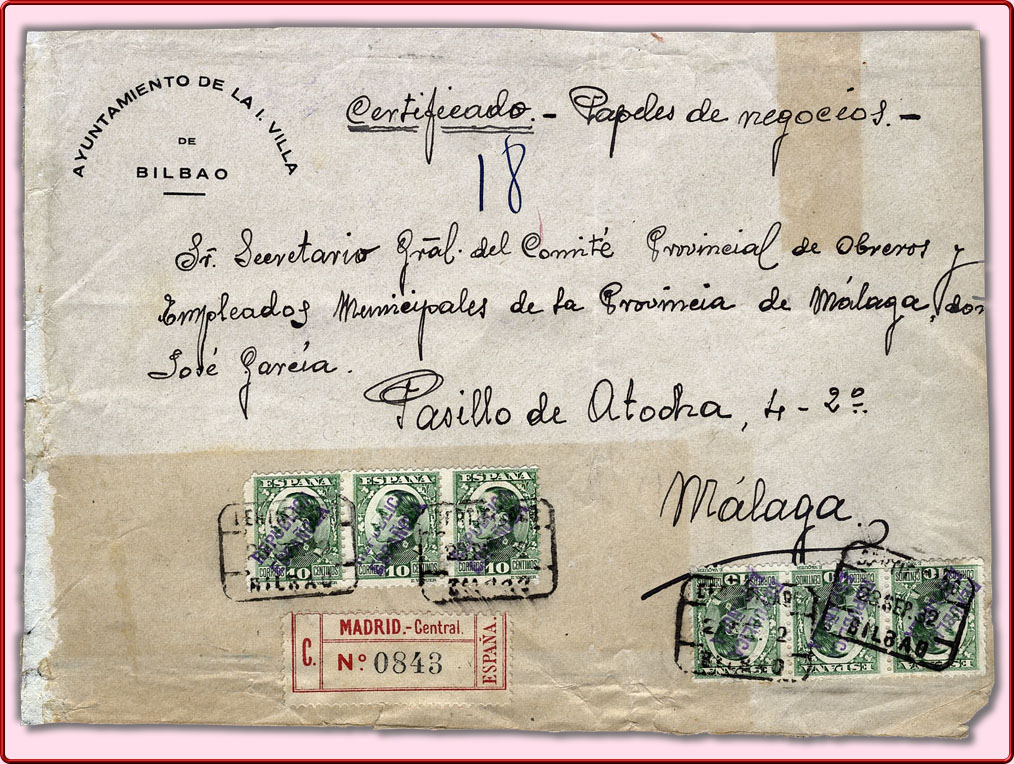 AYUNTAMIENTO DE LA I. VILLA
DE
BILBAO
Certificado.- Papeles de negocios.-
18
Sr. Secretario Gral. del Comité Provincial de Obreros y
Empleados Municipales de la Provincia de Málaga, don
José García.
Pasillo de Atocha, 4-2º
Málaga.
ESPAÑA ESPAÑA ESPAÑA
REPUBLICA ESPAÑOLA
CORREOS 10 CENTIMOS CORREOS 10 CENTIMOS CORREOS 10 CENTIMOS
BILBAO
C. MADRID.-Central. ESPAÑA.
Nº 0843
ESPAÑA ESPAÑA ESPAÑA
22 SEP 32
BILBAO
BILBAO